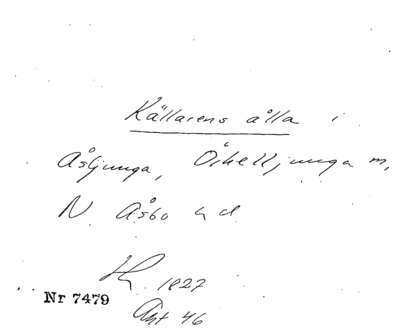 Källarens ålla i
Åsljunga, Örkelljunga m,
N. Åsbo hd
1827
Nr 7479
Akt 46